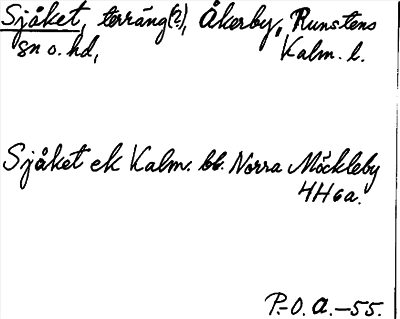 Sjåket, terräng(?), Åkerby, Runstens
sn o. hd, Kalm. l.
Sjåket ek Kalm. bl. Norra Möckleby
4H6a.
P.-O. A.-55.